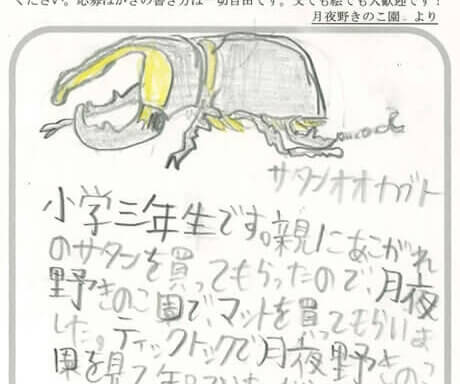 ください。応募はがきの書き方は一切自由です。文でも絵でも大歓迎です！
月夜野きのこ園　より
サタンオオカブト
小学三年生です。親にあこがれ
のサタンを買ってもらったので、月夜
野きのこ園でマットを買ってもらいま
した。ティックトックで月夜野きの
園を見て